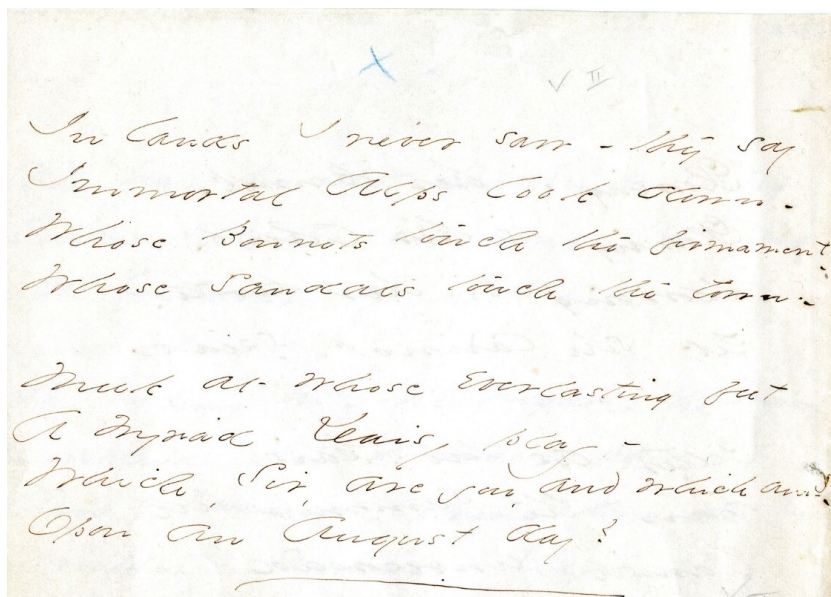 X
✓ II
In lands I never saw - they say
Immortal Alps look down -
Whose Bonnets touch the firmament -
Whose Sandals touch the town -
Meek at whose Everlasting feet
A Myriad Daisy play -
Which, Sir, are you and which am I -
Opon an August day?